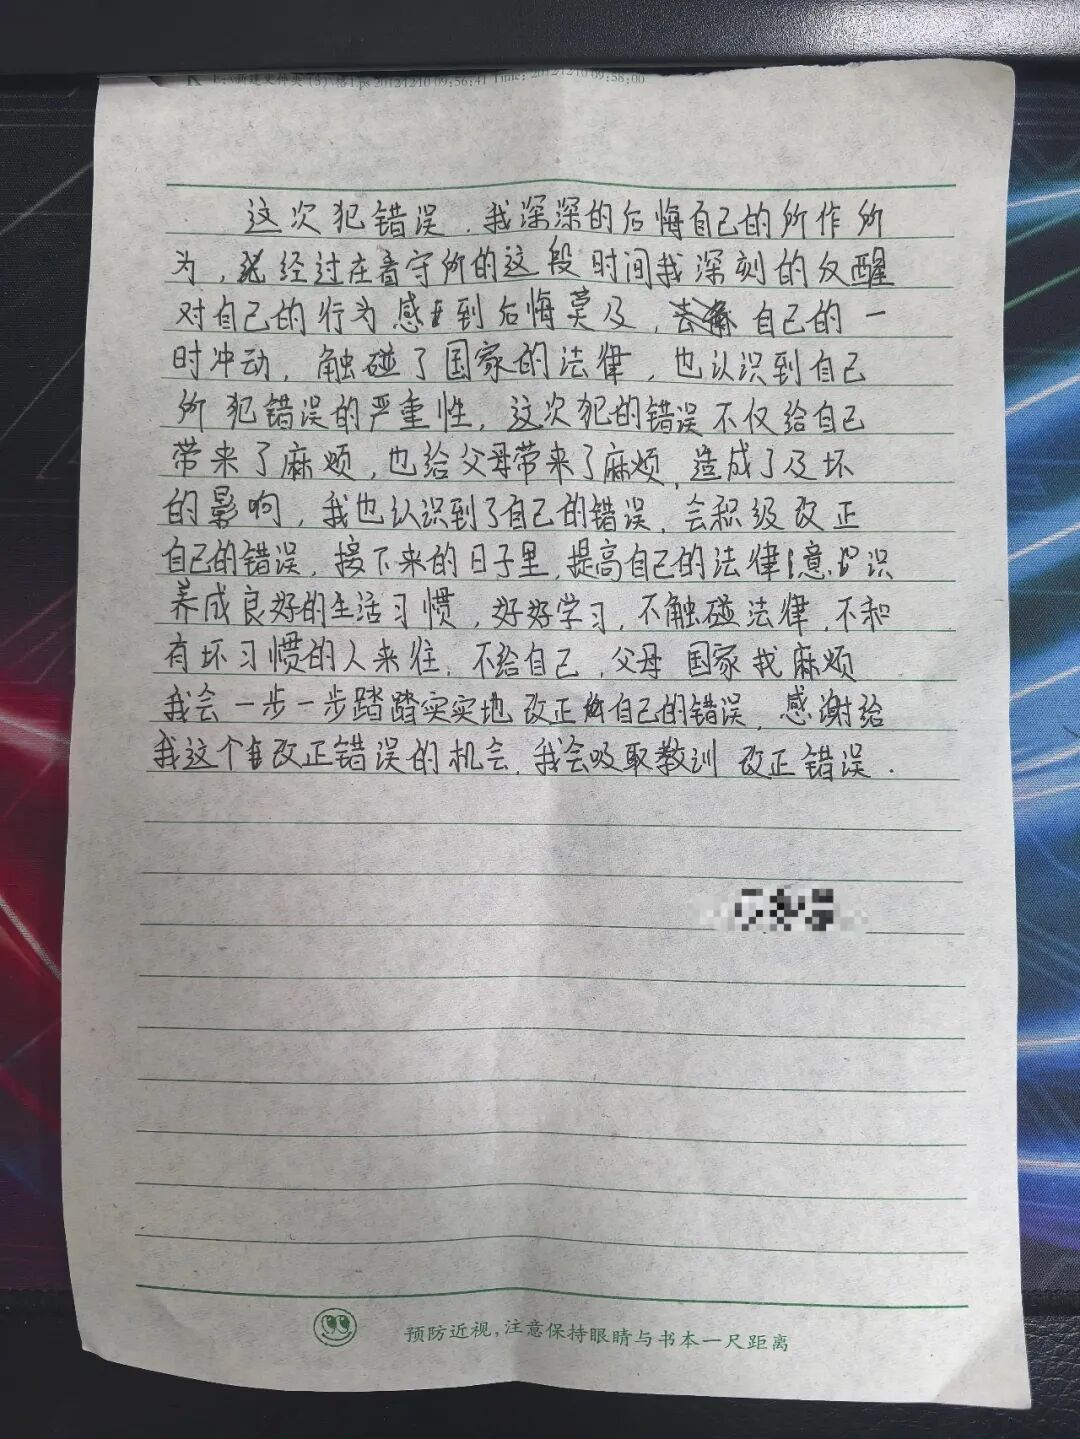 K L:\新建文件夹(3)\格1.ps 20121210 09:56:41 Time: 20121210 09:58:00
这次犯错误.我深深的后悔自己的所作所
为,经过在看守所的这段时间我深刻的反醒
对自己的行为感到后悔莫及,自己的一
时冲动,触碰了国家的法律,也认识到自己
所犯错误的严重性,这次犯的错误不仅给自己
带来了麻烦,也给父母带来了麻烦,造成了及坏
的影响,我也认识到了自己的错误,会积级改正
自己的错误,接下来的日子里,提高自己的法律意识
养成良好的生活习惯,好好学习,不触碰法律,不和
有坏习惯的人来往,不给自己,父母 国家找麻烦
我会一步一步踏踏实实地 改正自己的错误,感谢给
我这个改正错误的机会,我会吸取教训 改正错误.
预防近视,注意保持眼睛与书本一尺距离